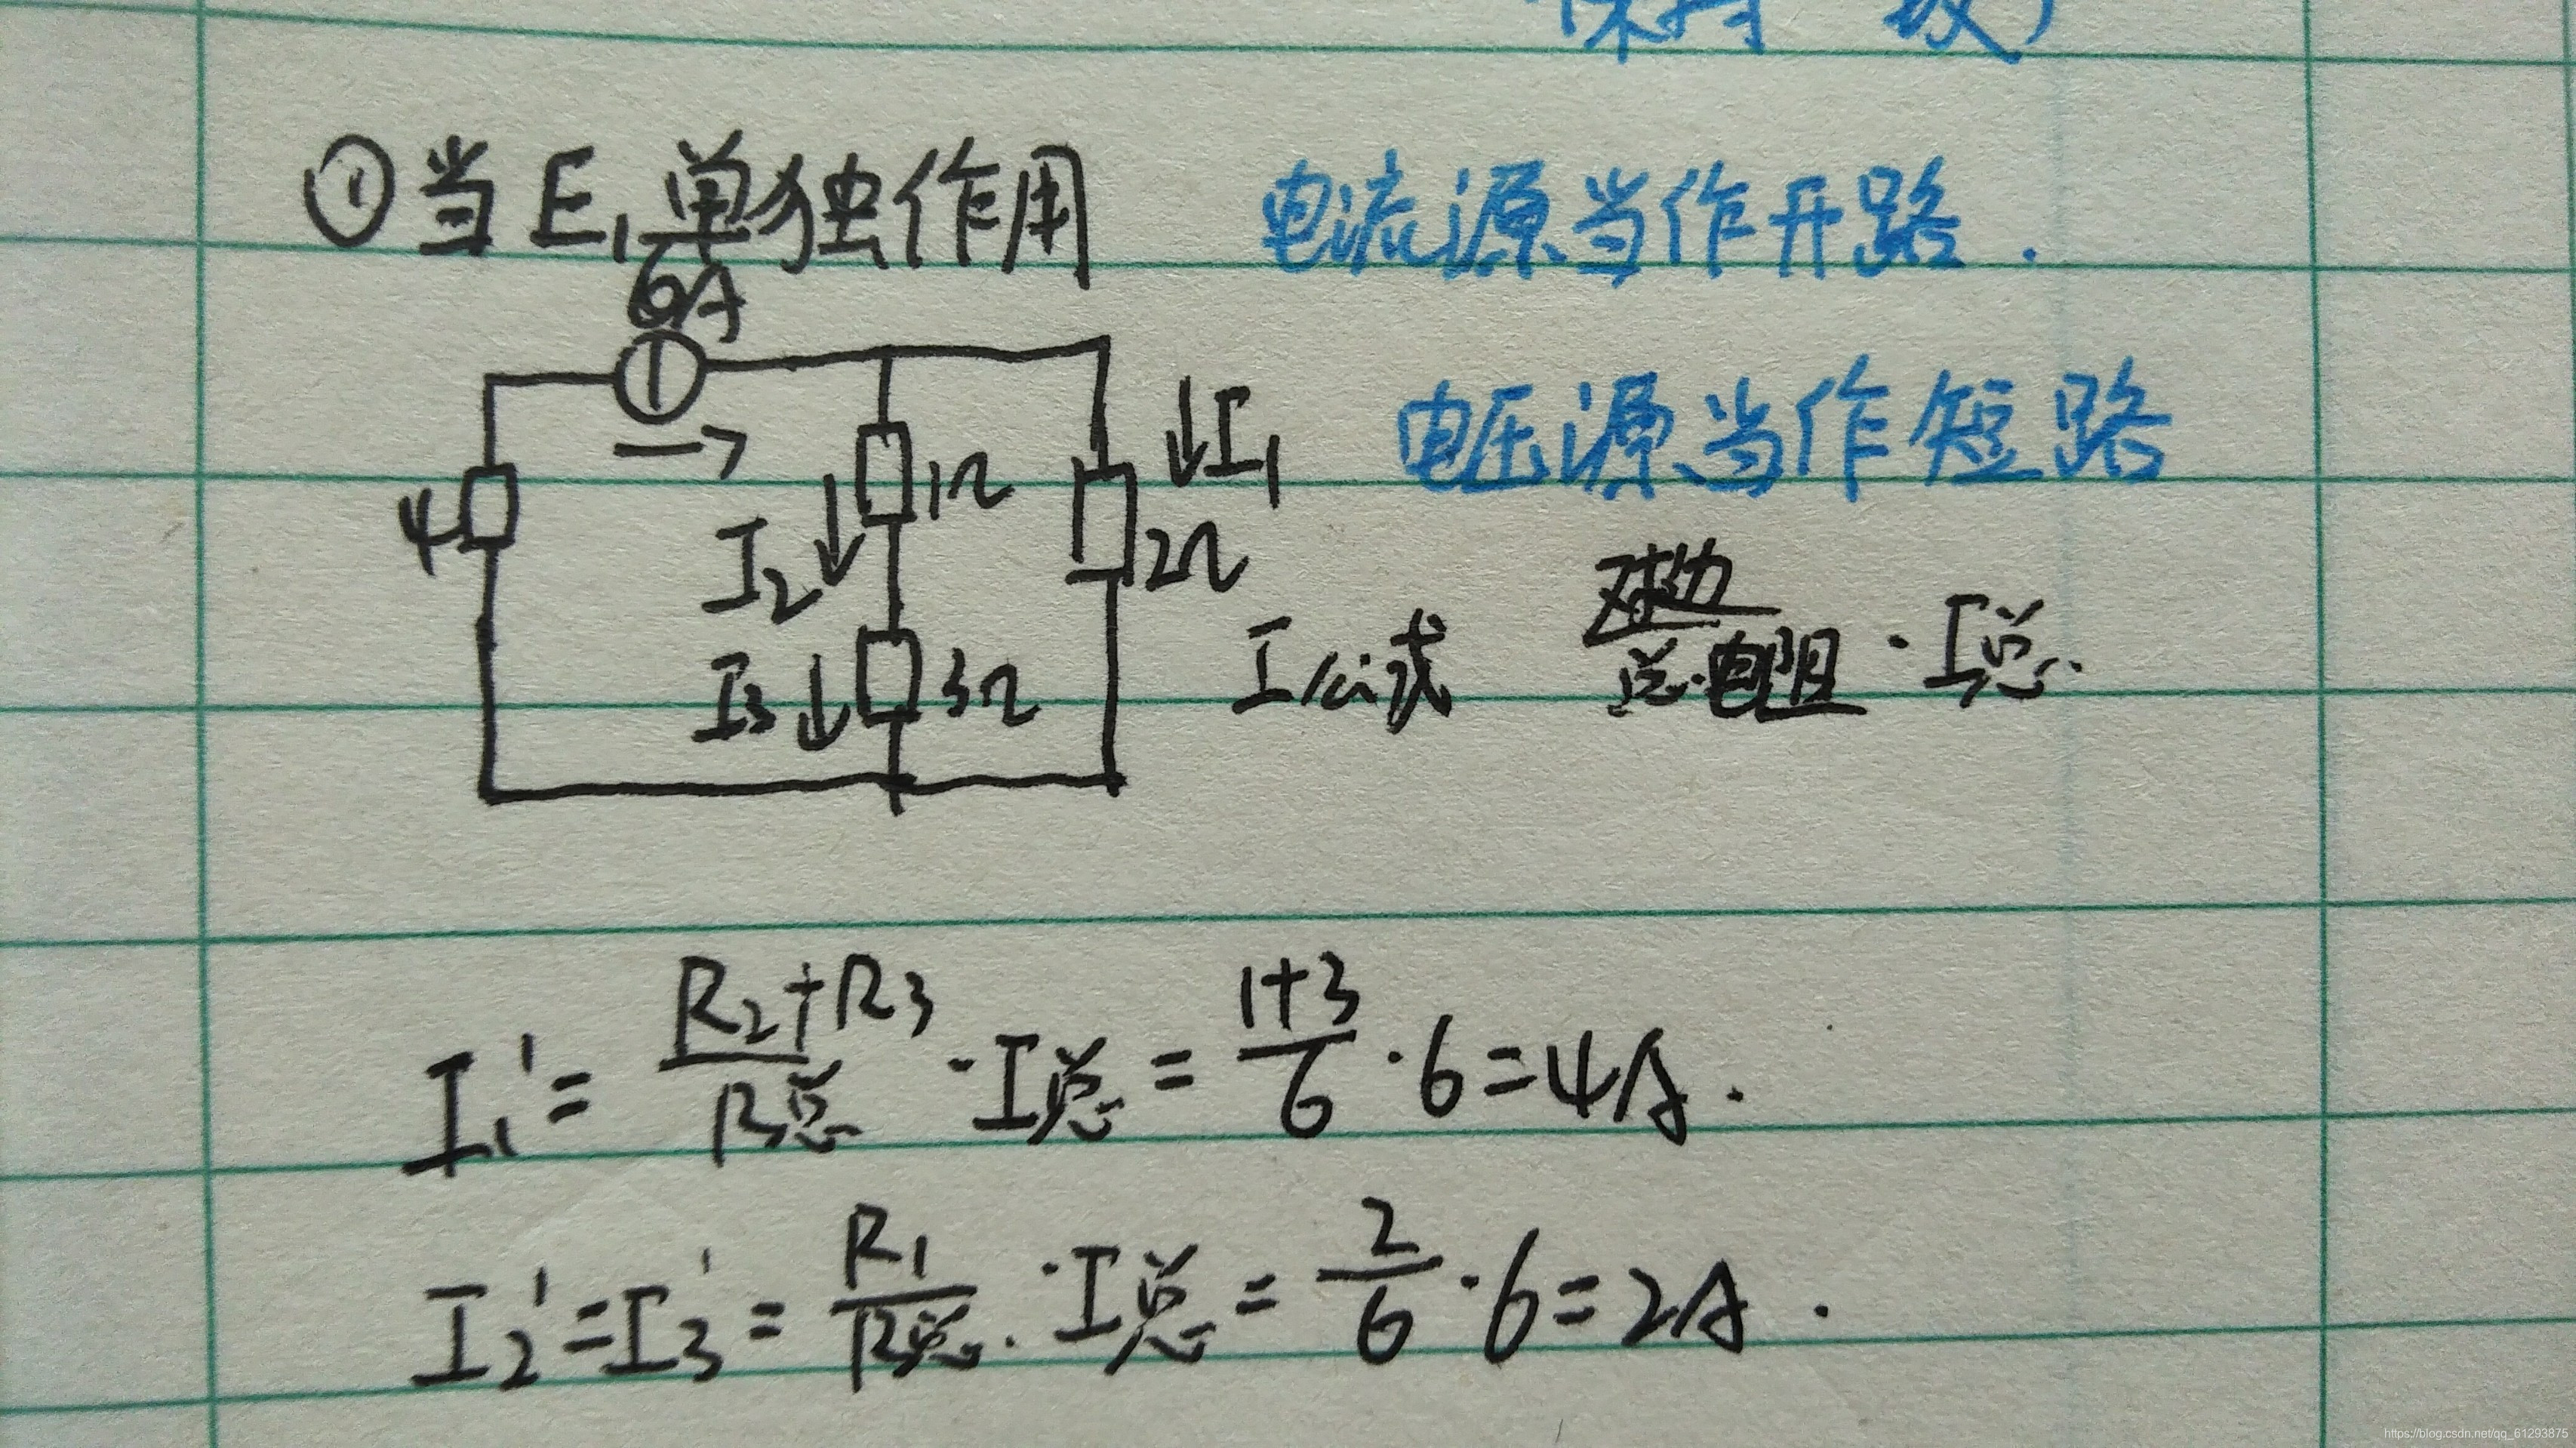 保持一致)
①当E₁单独作用 电流源当作开路.
6A
↓I₁
电压源当作短路
4
1Ω
I₂
2Ω
I公式 对边/总电阻 · I总.
I₃
3Ω
I₁' = (R₂+R₃)/R总 · I总 = (1+3)/6 · 6 = 4A.
I₂' = I₃' = R₁/R总 · I总 = 2/6 · 6 = 2A.
https://blog.csdn.net/qq_61293875